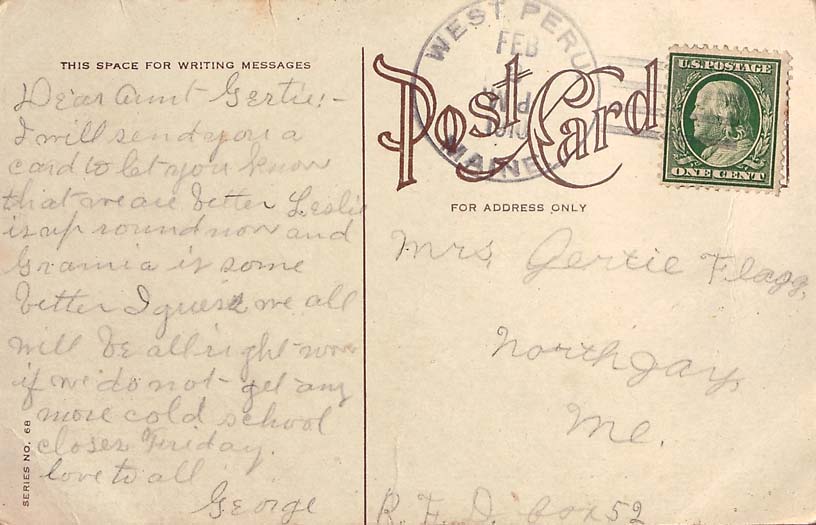 THIS SPACE FOR WRITING MESSAGES
Dear Aunt Gertie:-
I will send you a
card to let you know
that we are better Leslie
is up round now and
Gramia is some
better I guess we all
will be all right now
if we do not get any
more cold school
closes Friday.
love to all
George
SERIES NO. 68
WEST PERU
FEB
1910
MAINE
Post Card
FOR ADDRESS ONLY
U.S. POSTAGE
ONE CENT
Mrs. Gertie Flagg,
North Jay,
Me.
R. F. D. Box 52